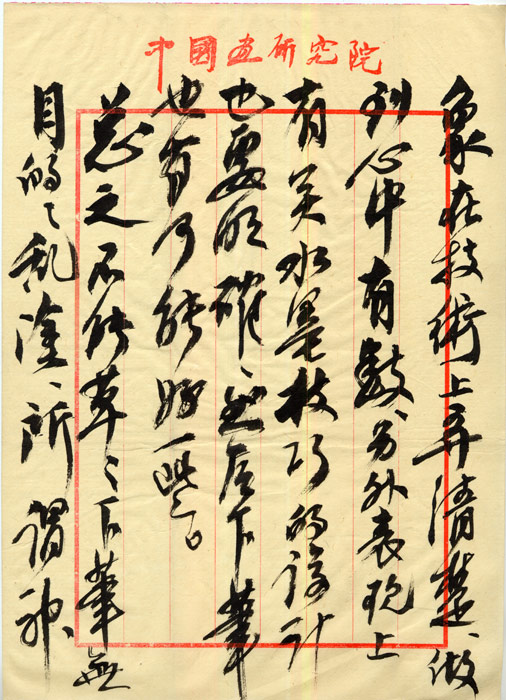 中國画研究院
象在技術上弄清楚、做
到心中有数、另外表现上
有关水墨技巧的设计
也要明確、然后下筆
也有可能好一些。
总之不能草々下筆無
目的々乱塗、所謂神